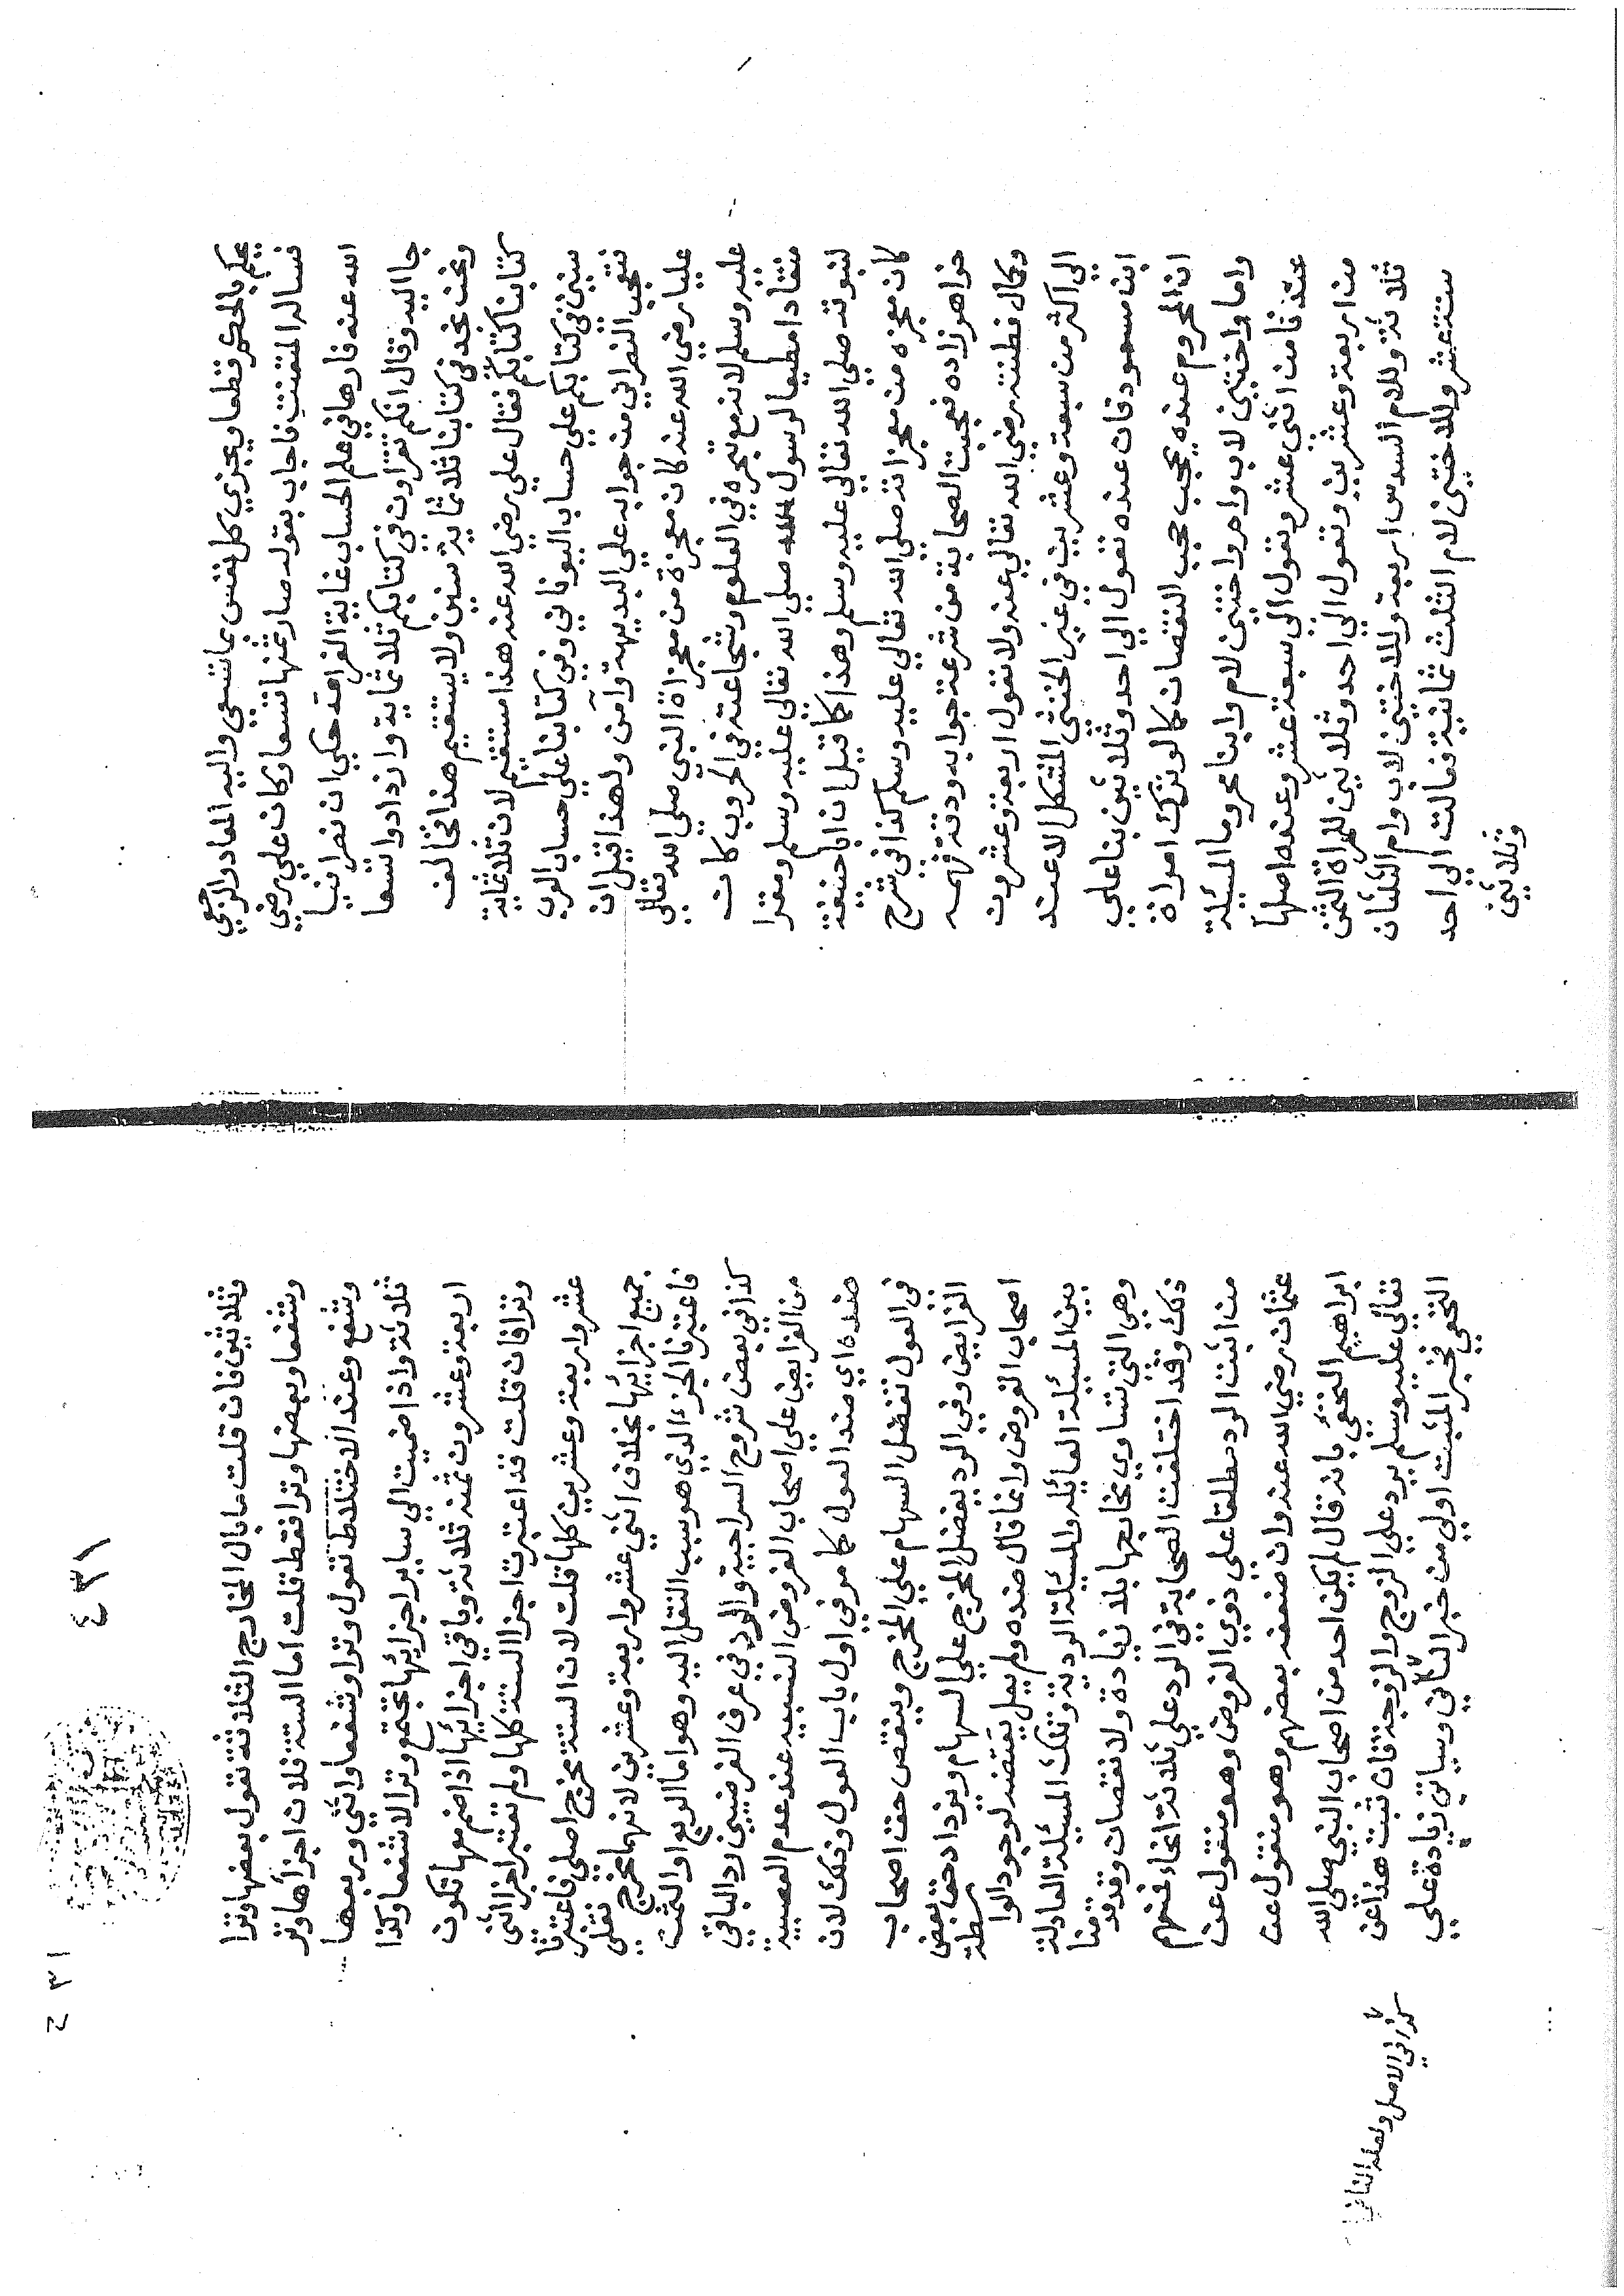 يحكم بالحكم قطعا ويجزي كل نفس بما تسعى واليه المعاد والرجعي
فسالہ المتعنت فاجاب بقوله صار ثمنها تسعا وكان علي رضي
الله عنه فارها في علم الحساب غاية الفراهة حكي ان نصرانيا
جا اليه وقال انكم تقراون في كتابكم ثلاثماية وازدادوا تسعا
ونحن نجد في كتابنا ثلاثماية سنين ولا يستقيم هذا تخالف
كتابنا كتابكم فقال علي رضي الله عنه هذا مستقيم لان ثلاثماية
سنين في كتابكم علي حساب اليوناني وفي كتابنا علي حساب العرب
فتعجب النصراني من جوابه علي البديهة وآمن ولهذا قيل ان
عليا رضي الله عنه كان معجزة من معجزاة النبي صلي الله تعالي
عليه وسلم لانه مع تبحره في العلوم وشجاعته في الحروب كان
منقادا مطيعا لرسول الله صلي الله تعالي عليه وسلم ومقرا
لنبوته صلي الله تعالي عليه وسلم وهذا كما قيل ان ابا حنيفة
كان معجزه من معجزاته صلي الله تعالي عليه وسلم كذا في شرح
خواهر زاده فعجبت الصحابة من سرعة جوابه ودقة فهمه
وكمال فطنته رضي الله تعالي عنه ولا تعول اربعة وعشرون
الي اكثر من سبعة وعشرين في غير الخنثي المشكل الا عند
ابن مسعود فان عنده تعول الي احد وثلاثين بنا علي
ان المحروم عنده يحجب حجب النقصان كما لو ترك امراة
واما واختين لاب وام واختين لام وابنا محروما المسئلة
عندنا من اثني عشر وتعول الي سبعة عشر وعنده اصلها
من اربعة وعشرين وتعول الي احد وثلاثين للمراة الثمن
ثلاثة وللام السدس اربعة وللاختين لاب وام الثلثان
ستة عشر وللاختين لام الثلث ثمانية فعالت الي احد
وثلاثين
٤٣١
ح ٣١
وثلاثين فان قلت ما بال المخارج الثلاثة تعول بعضها وترا
وشفعا وبعضها وترا فقط قلت اما الستة فلان اجزآها وتر
وشفع وعند الاختلاط تعول وترا وشفعا واثني وربعها
ثلاثة واذا ضميت الي ساير اجزايها تجتمع وترا لا شفعا وكذا
اربعة وعشرون ثمنه ثلاثة وباقي اجزايها اذا ضم معها تكون
وترا فان قلت قد اعتبرت اجزا الستة كلها ولم تعتبر اجزا اثني
عشر واربعة وعشرين كلها قلت لان الستة مخرج اصلي فاعتبرنا
جميع اجزايها بخلاف اثني عشر واربعة وعشرين لانهما مخرج نقلي
فاعتبرنا الجزء الذي هو سبب النقل اليه وهو اما الربع او الثمن
كذا في بعض شروح السراجية والرد في عرف الفرضيين رد الباقي
من الفرايض علي اصحاب الفروض النسبيه عند عدم العصبة
ضده اي ضد العول كما مر في اول باب العول وذلك لان
في العول تفضل السهام علي المخرج وينقص حق اصحاب
الفرايض وفي الرد يفضل المخرج علي السهام ويزداد حق بعض
اصحاب الفروض وانما قال ضده ولم يقل نقيضه لوجود الواسطة
بين المسئلة العائلة والمسئلة الردية وتلك المسئلة العادلة
وهي التي تساوي مخارجها بلا زيادة ولا نقصان وقد قدمنا
ذلك وقد اختلفت الصحابة في الرد علي ثلاثة انحاء فمنهم
من اثبت الرد مطلقا علي ذوي الفروض وهو منقول عن
عثمان رضي الله عنه وان ضعفه بعضهم وهو منقول عن
ابراهيم النخعي بانه قال لم يكن احد من اصحاب النبي صلي الله
تعالي عليه وسلم يرد علي الزوج والزوجة فان ثبت هذا عن
النخعي فخبر المثبت اولي من خبر النافي وسياتي زيادة علي
كذا في الاصل ولعله الثاني